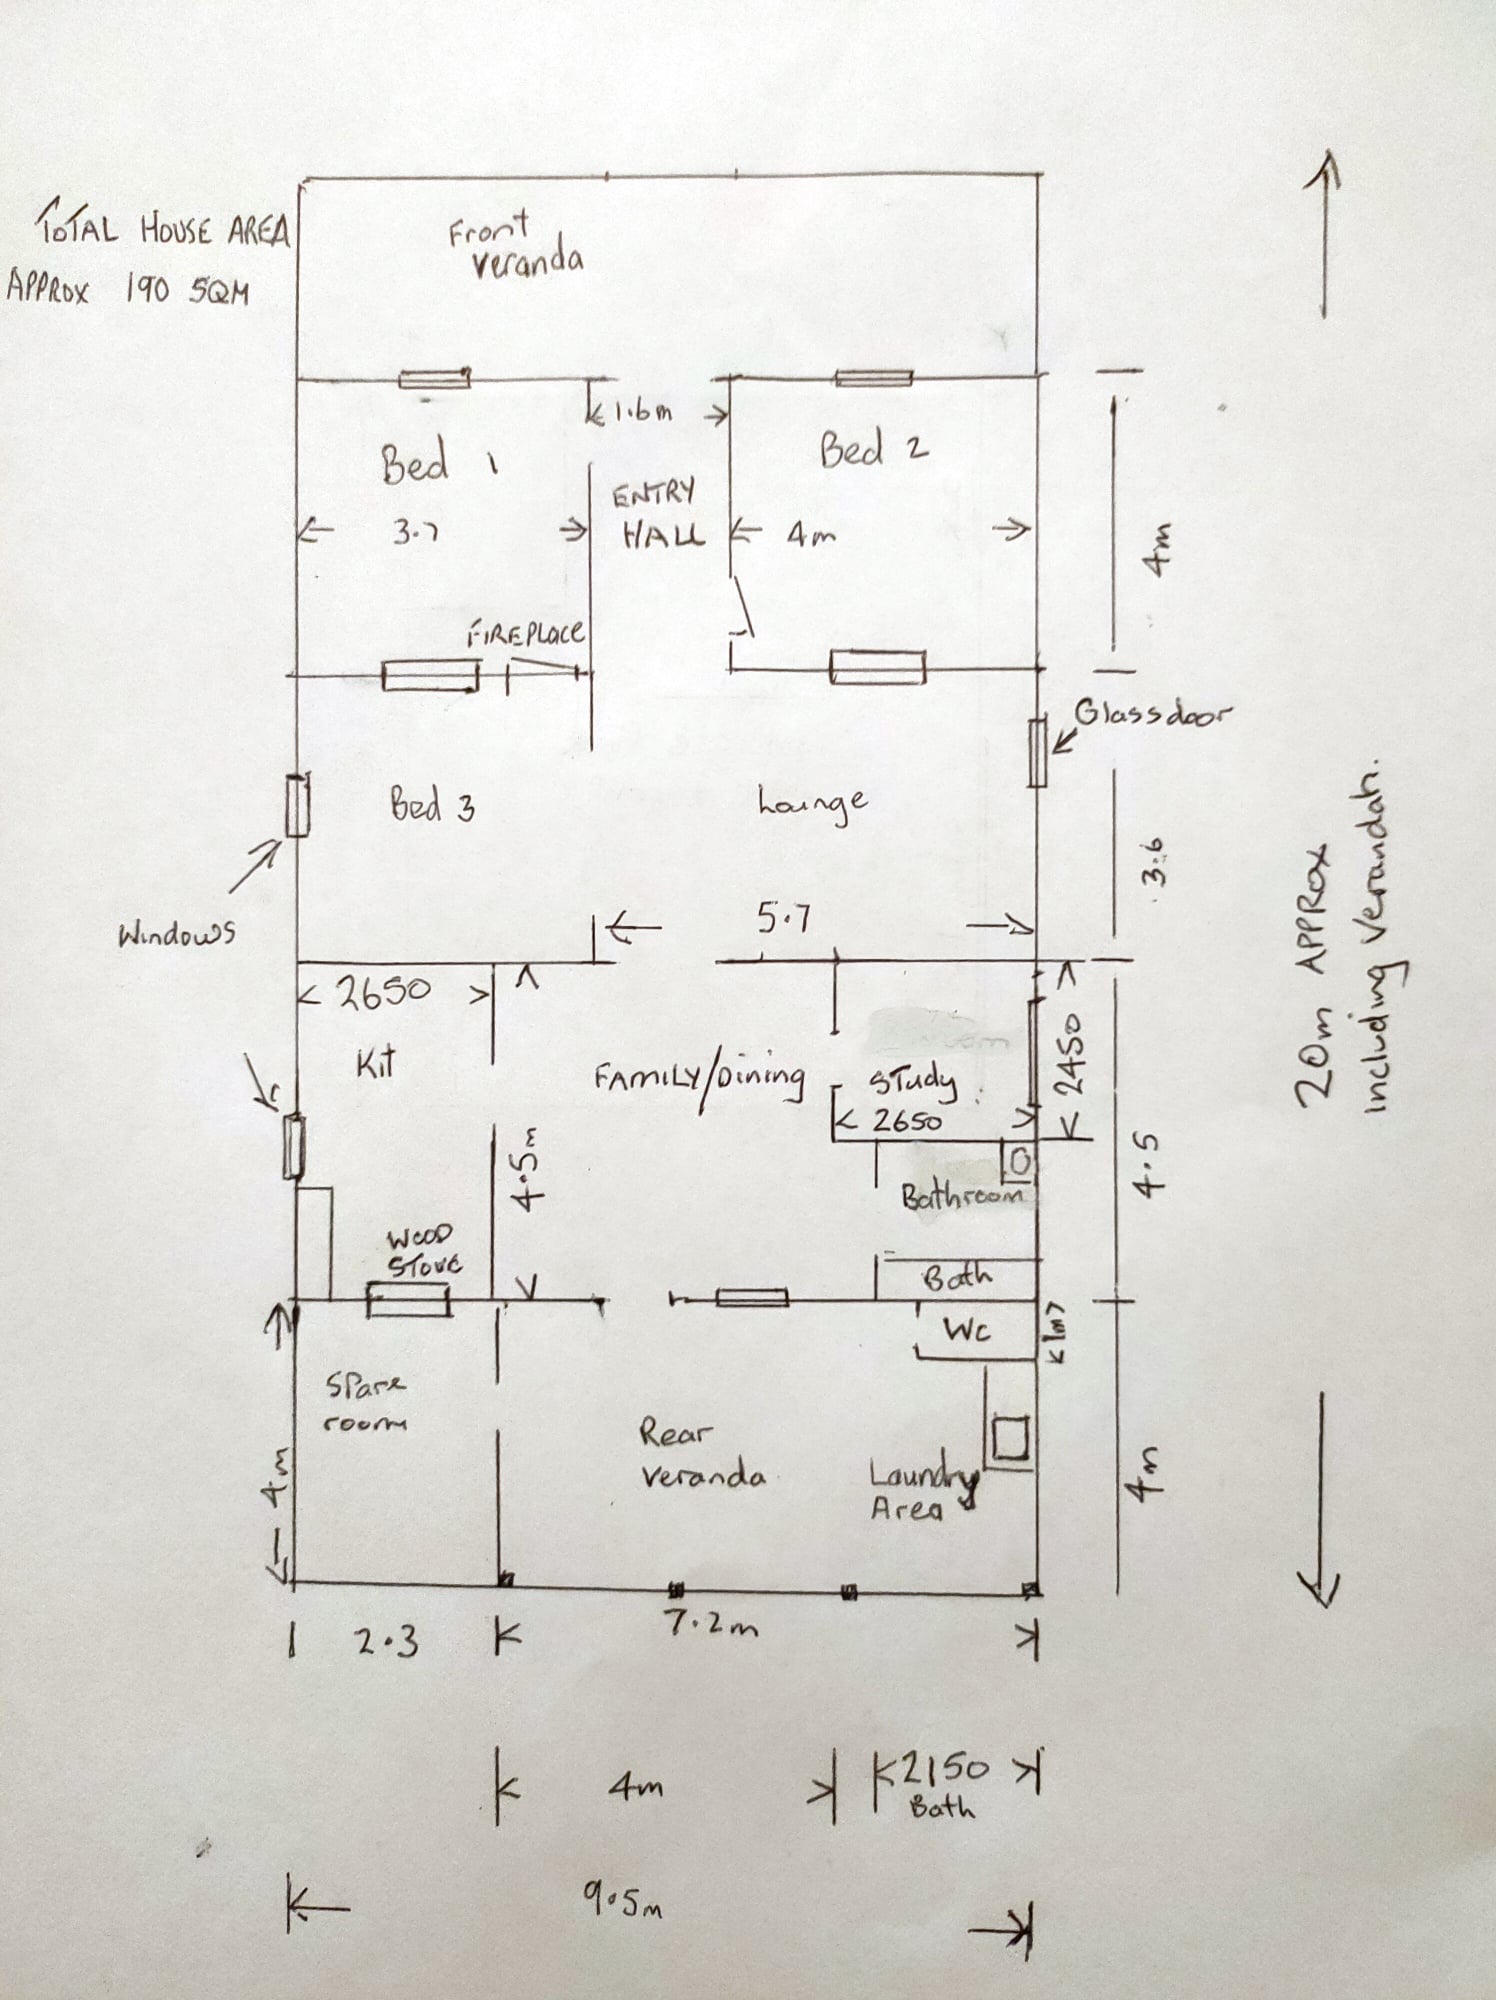 TOTAL HOUSE AREA
APPROX 190 SQM
Front
Veranda
1.6m
Bed 1
Bed 2
ENTRY
HALL
3.7
4m
4m
FIREPLACE
Glassdoor
Bed 3
Lounge
3.6
Windows
5.7
20m APPROX
Including Verandah.
2650
Kit
FAMILY/Dining
Study
2650
2450
4.5m
4.5
Bathroom
WOOD
STOVE
Bath
WC
1m
Spare
room
Rear
Veranda
Laundry
Area
4m
4m
2.3
7.2m
4m
2150
Bath
9.5m